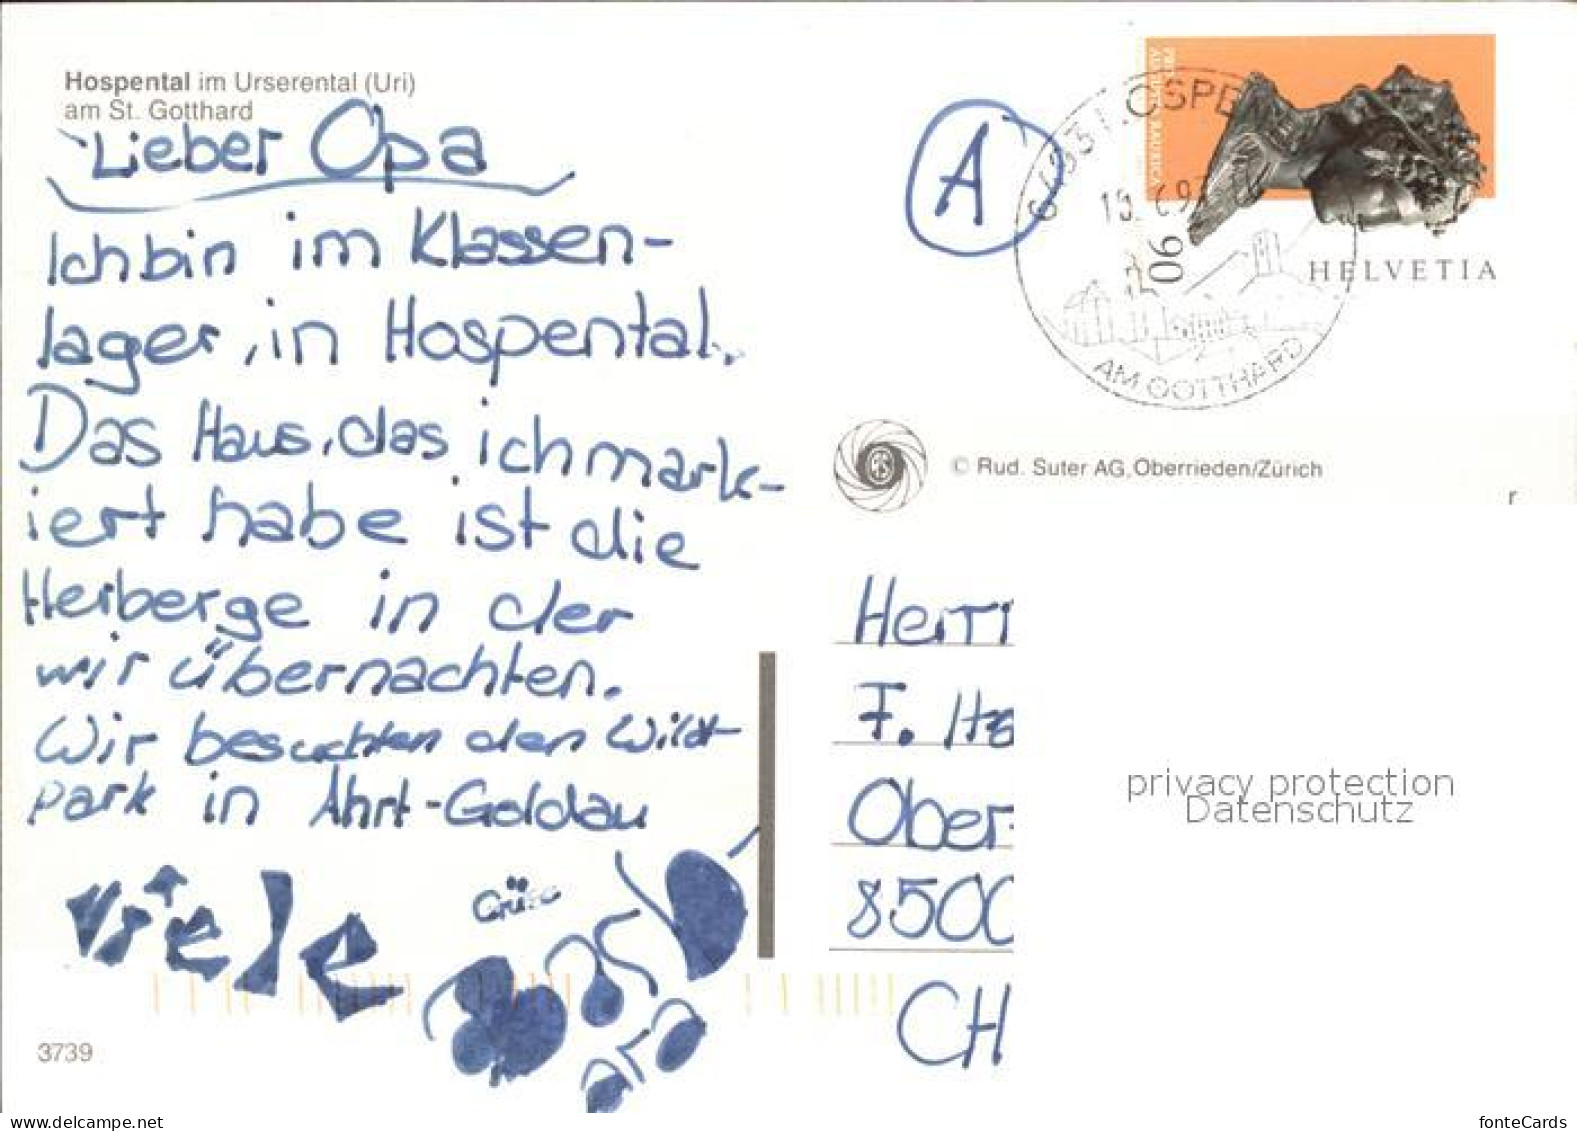 Hospental im Urserental (Uri)
am St. Gotthard
Lieber Opa
Ich bin im Klassen-
lager, in Hospental.
Das Haus, das ich mark-
iert habe ist die
Herberge in der
wir übernachten.
Wir besuchten den Wild-
park in Ahrt-Goldau
Viele
Grüse
3739
A
6493 HOSPE
AM GOTTHARD
90
HELVETIA
© Rud. Suter AG, Oberrieden/Zürich
r
Herrn
F.
Ober
8500
CH
privacy protection
Datenschutz
www.delcampe.net
fonteCards